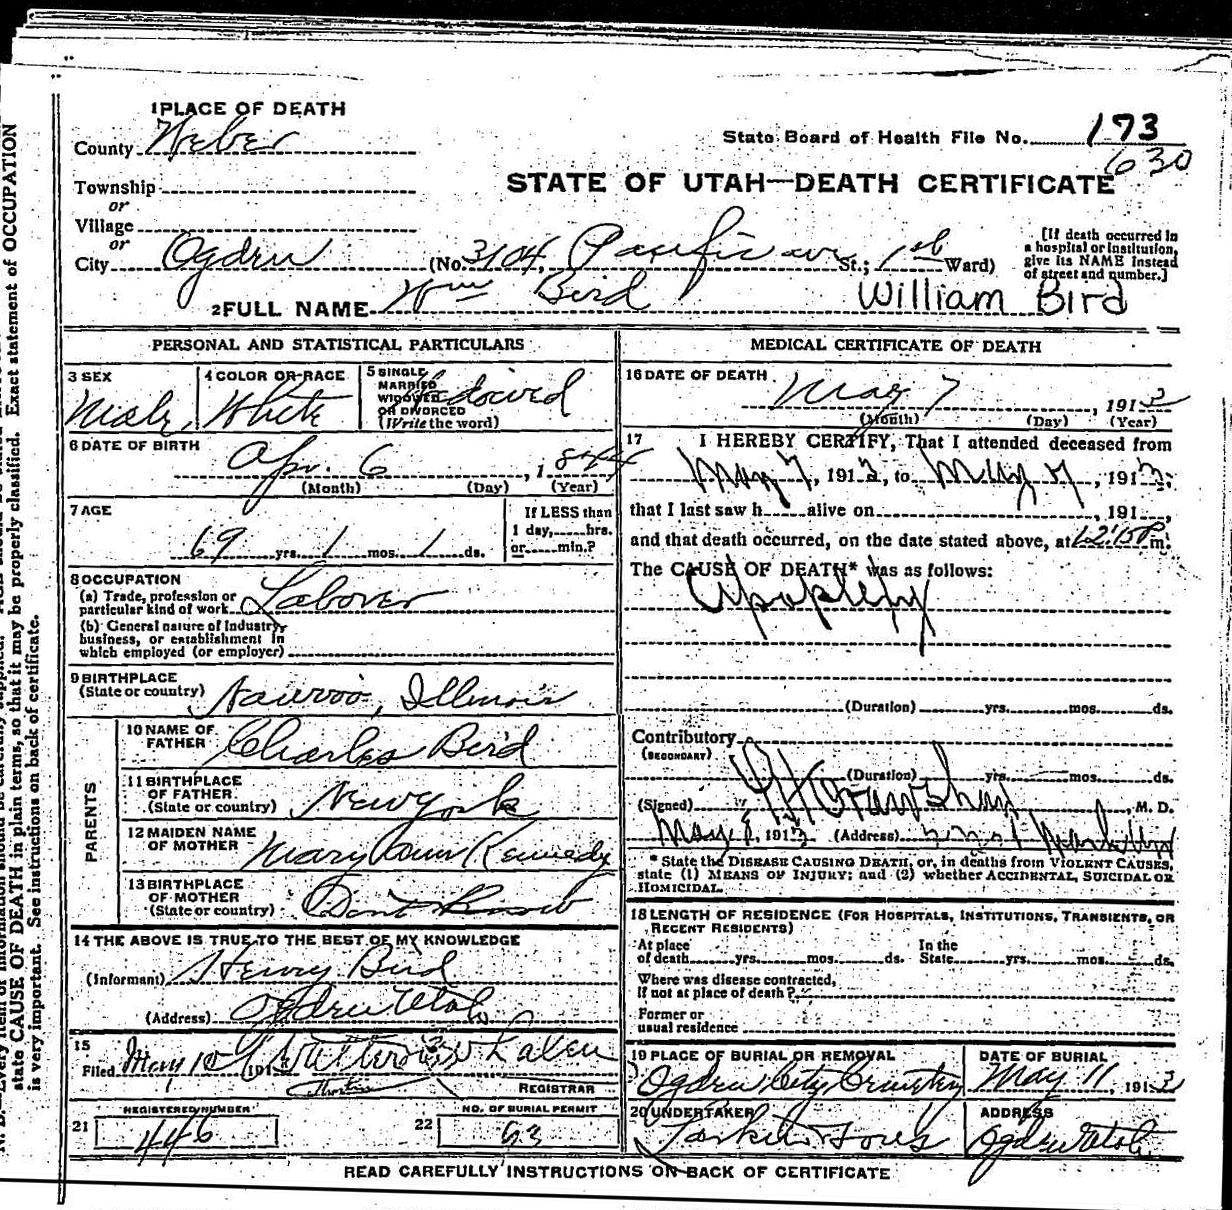 1 PLACE OF DEATH
County Weber
State Board of Health File No. 173
630
Township
or
STATE OF UTAH—DEATH CERTIFICATE
Village
or
City Ogden (No. 3104, Pacific ave St.; 1st Ward)
[If death occurred in a hospital or Institution, give its NAME instead of street and number.]
2 FULL NAME Wm Bird William Bird
PERSONAL AND STATISTICAL PARTICULARS
3 SEX Male,
4 COLOR OR RACE White
5 SINGLE MARRIED WIDOWED OR DIVORCED (Write the word) Widowed
6 DATE OF BIRTH
Apr. 6, 1844
(Month) (Day) (Year)
7 AGE
69 yrs. 1 mos. 1 ds.
If LESS than 1 day, hrs. or min.?
8 OCCUPATION
(a) Trade, profession or particular kind of work Laborer
(b) General nature of Industry, business, or establishment in which employed (or employer)
9 BIRTHPLACE
(State or country) Nauvoo, Illinois
PARENTS
10 NAME OF FATHER Charles Bird
11 BIRTHPLACE OF FATHER (State or country) New York
12 MAIDEN NAME OF MOTHER Mary Ann Kennedy
13 BIRTHPLACE OF MOTHER (State or country) Dont Know
14 THE ABOVE IS TRUE TO THE BEST OF MY KNOWLEDGE
(Informant) Henry Bird
(Address) Ogden Utah
15
Filed May 10 191 Walter Whalen
REGISTRAR
REGISTERED NUMBER
21 446
NO. OF BURIAL PERMIT
22 93
MEDICAL CERTIFICATE OF DEATH
16 DATE OF DEATH May 7, 1913
(Month) (Day) (Year)
17 I HEREBY CERTIFY, That I attended deceased from
May 7, 1913, to May 7, 1913;
that I last saw h alive on , 191 ,
and that death occurred, on the date stated above, at m.
The CAUSE OF DEATH* was as follows:
Apoplexy
(Duration) yrs. mos. ds.
Contributory
(SECONDARY)
(Duration) yrs. mos. ds.
(Signed) , M. D.
May 8, 1913 (Address)
* State the DISEASE CAUSING DEATH, or, in deaths from VIOLENT CAUSES, state (1) MEANS OF INJURY; and (2) whether ACCIDENTAL, SUICIDAL OR HOMICIDAL.
18 LENGTH OF RESIDENCE (FOR HOSPITALS, INSTITUTIONS, TRANSIENTS, OR RECENT RESIDENTS)
At place of death yrs. mos. ds. In the State yrs. mos. ds.
Where was disease contracted, If not at place of death?
Former or usual residence
19 PLACE OF BURIAL OR REMOVAL Ogden City Cemetery
DATE OF BURIAL May 11 1913
20 UNDERTAKER
ADDRESS Ogden Utah
READ CAREFULLY INSTRUCTIONS ON BACK OF CERTIFICATE
state CAUSE OF DEATH in plain terms, so that it may be properly classified. Exact statement of OCCUPATION
is very important. See instructions on back of certificate.